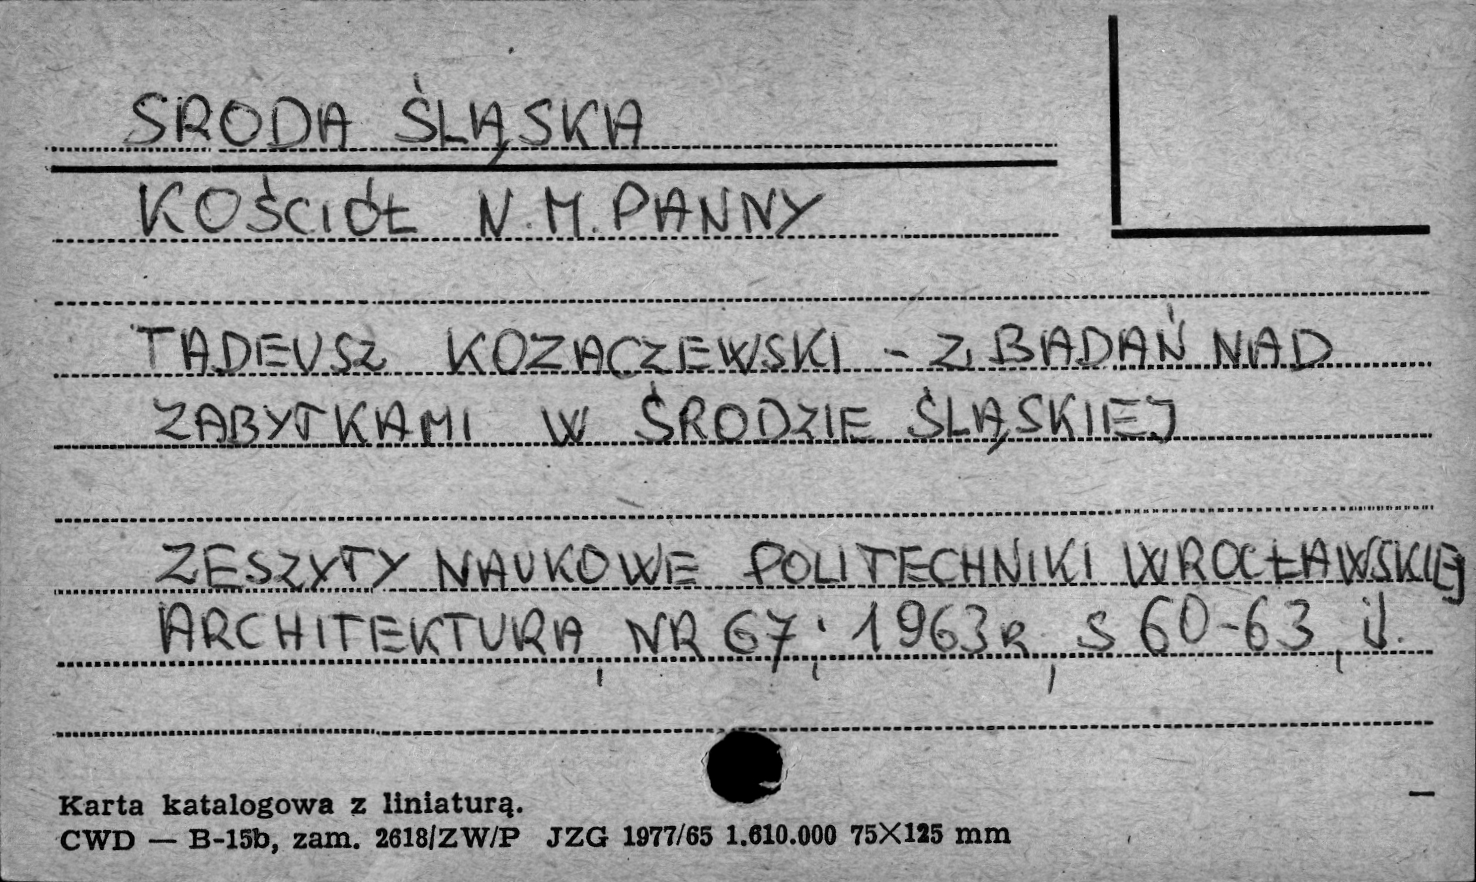 SRODA ŚLĄSKA
KOŚCIÓŁ N.M.PANNY
TADEUSZ KOZACZEWSKI - Z BADAŃ NAD
ZABYTKAMI W ŚRODZIE ŚLĄSKIEJ
ZESZYTY NAUKOWE POLITECHNIKI WROCŁAWSKIEJ
ARCHITEKTURA, NR 67; 1963R, S 60-63, il.
Karta katalogowa z liniaturą.
CWD — B-15b, zam. 2618/ZW/P JZG 1977/65 1.610.000 75×125 mm